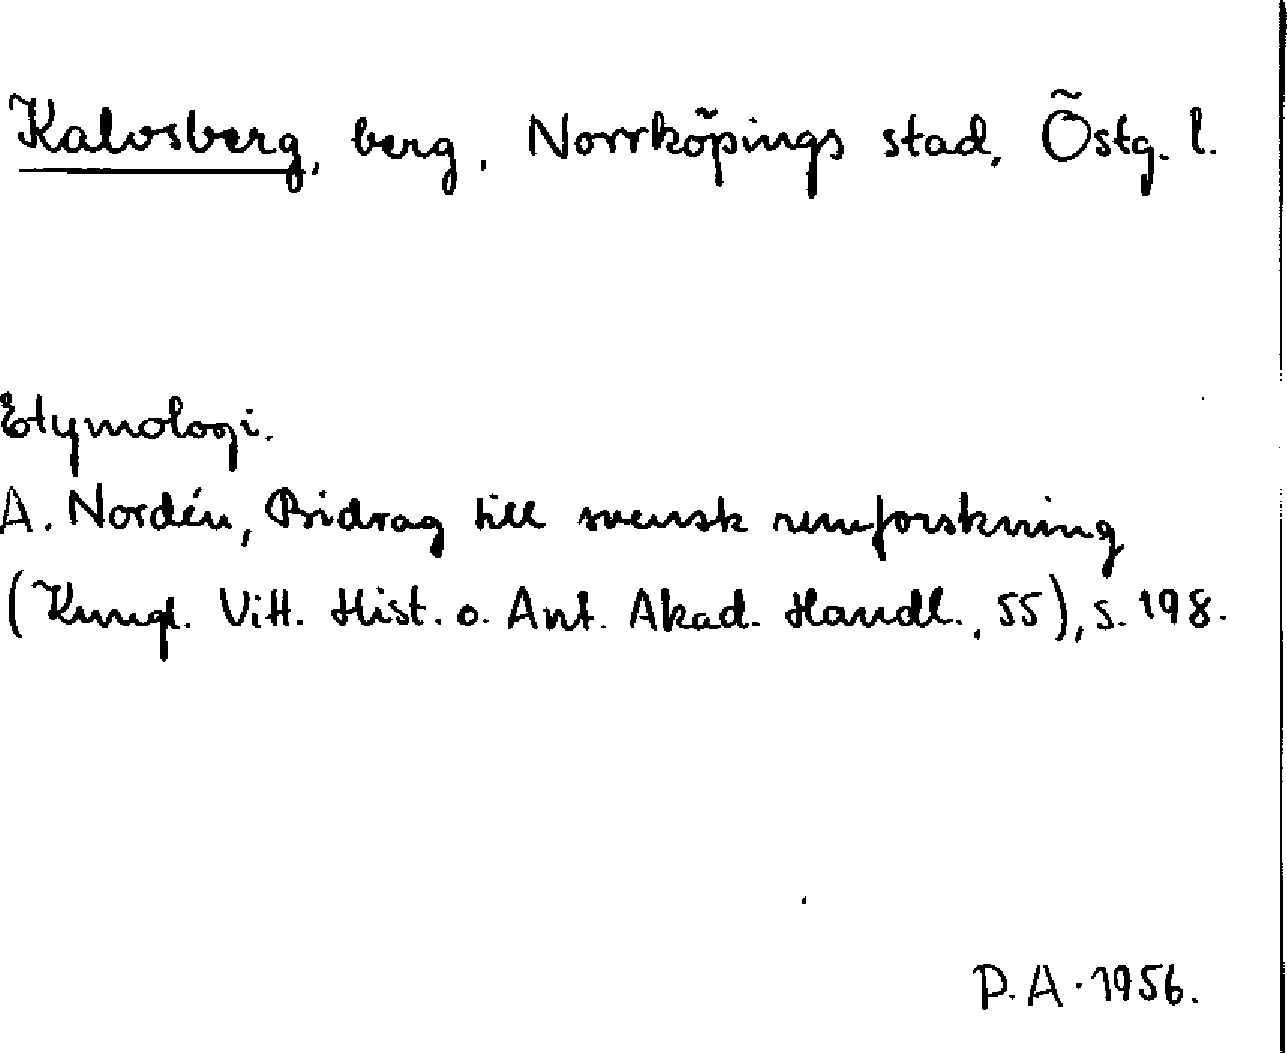 Kalvsberg, berg, Norrköpings stad, Östg. l.
Etymologi.
A. Nordén, Bidrag till svensk runforskning
(Kungl. Vitt. Hist. o. Ant. Akad. Handl., 55), s. 198.
P. A. 1956.